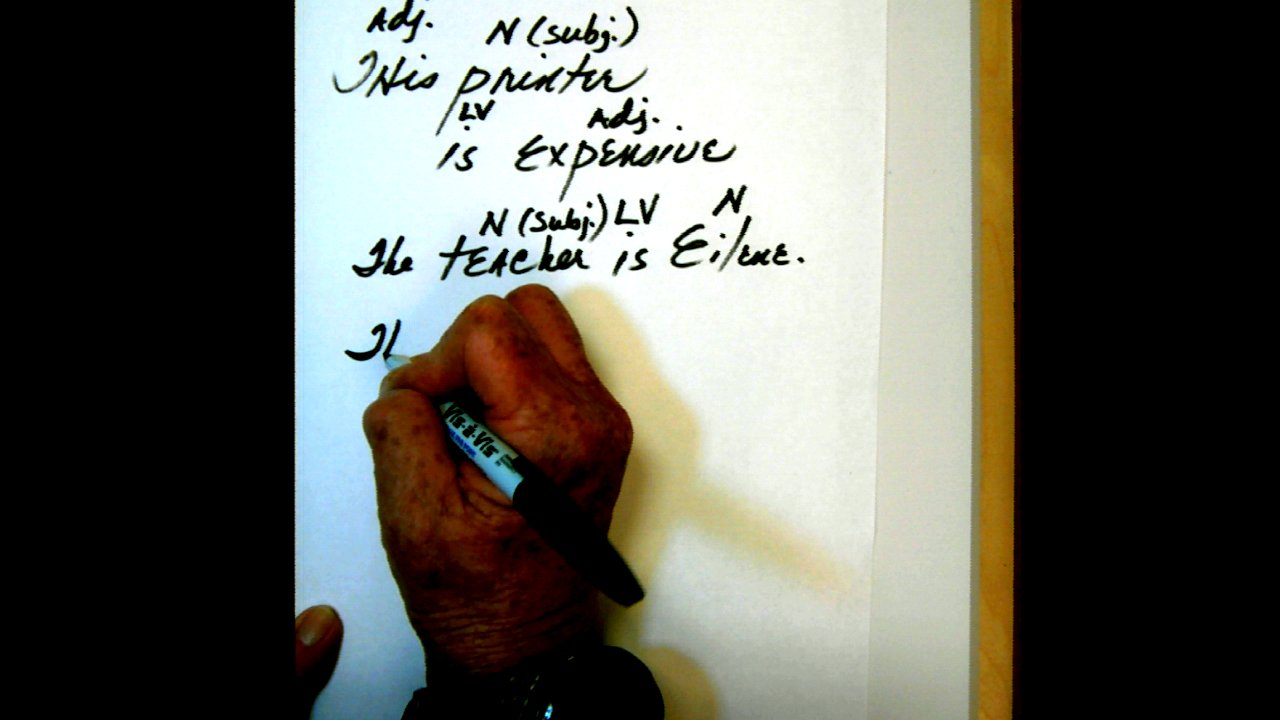 Adj. N (subj.)
This printer
LV Adj.
is Expensive
N (subj.) LV N
The teacher is Eilene.
Th
VIS-À-VIS